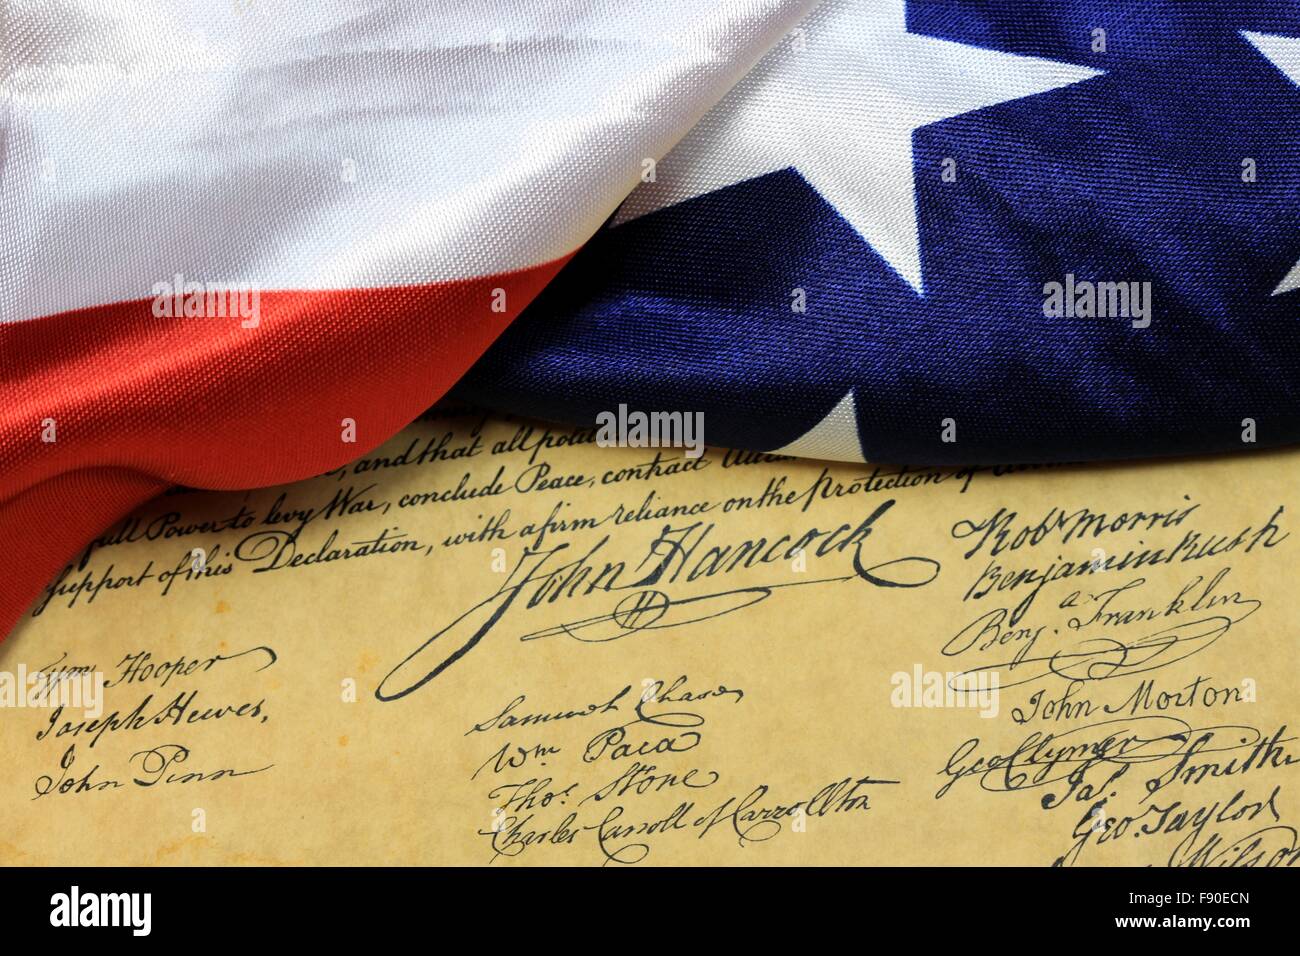 and that all
full Power to levy War, conclude Peace, contract
support of this Declaration, with a firm reliance on the protection of
John Hancock
Wm Hooper
Joseph Hewes,
John Penn
Samuel Chase
Wm Paca
Thos. Stone
Charles Carroll of Carrollton
Robt Morris
Benjamin Rush
Benj. a Franklin
John Morton
Geo Clymer
Jas. Smith
Geo. Taylor
Wilson
alamy
Image ID: F90ECN
www.alamy.com